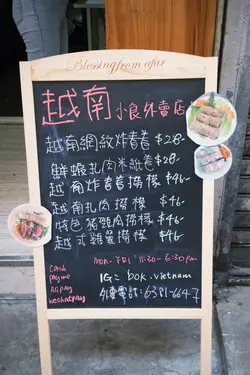 Blessing from afar
越南小良外賣店
越南網紋炸春卷 $28-
鮮蝦扎肉米紙卷 $28-
越南炸春卷撈檬 $46-
越南扎肉撈檬 $46-
特色豬頸肉撈檬 $46-
越式雞翼撈檬 $46-
Mon-Fri 11:30-6:30pm
Cash
payme
Alipay
Wechatpay
IG= bok.vietnam
外賣電話: 6381-6647